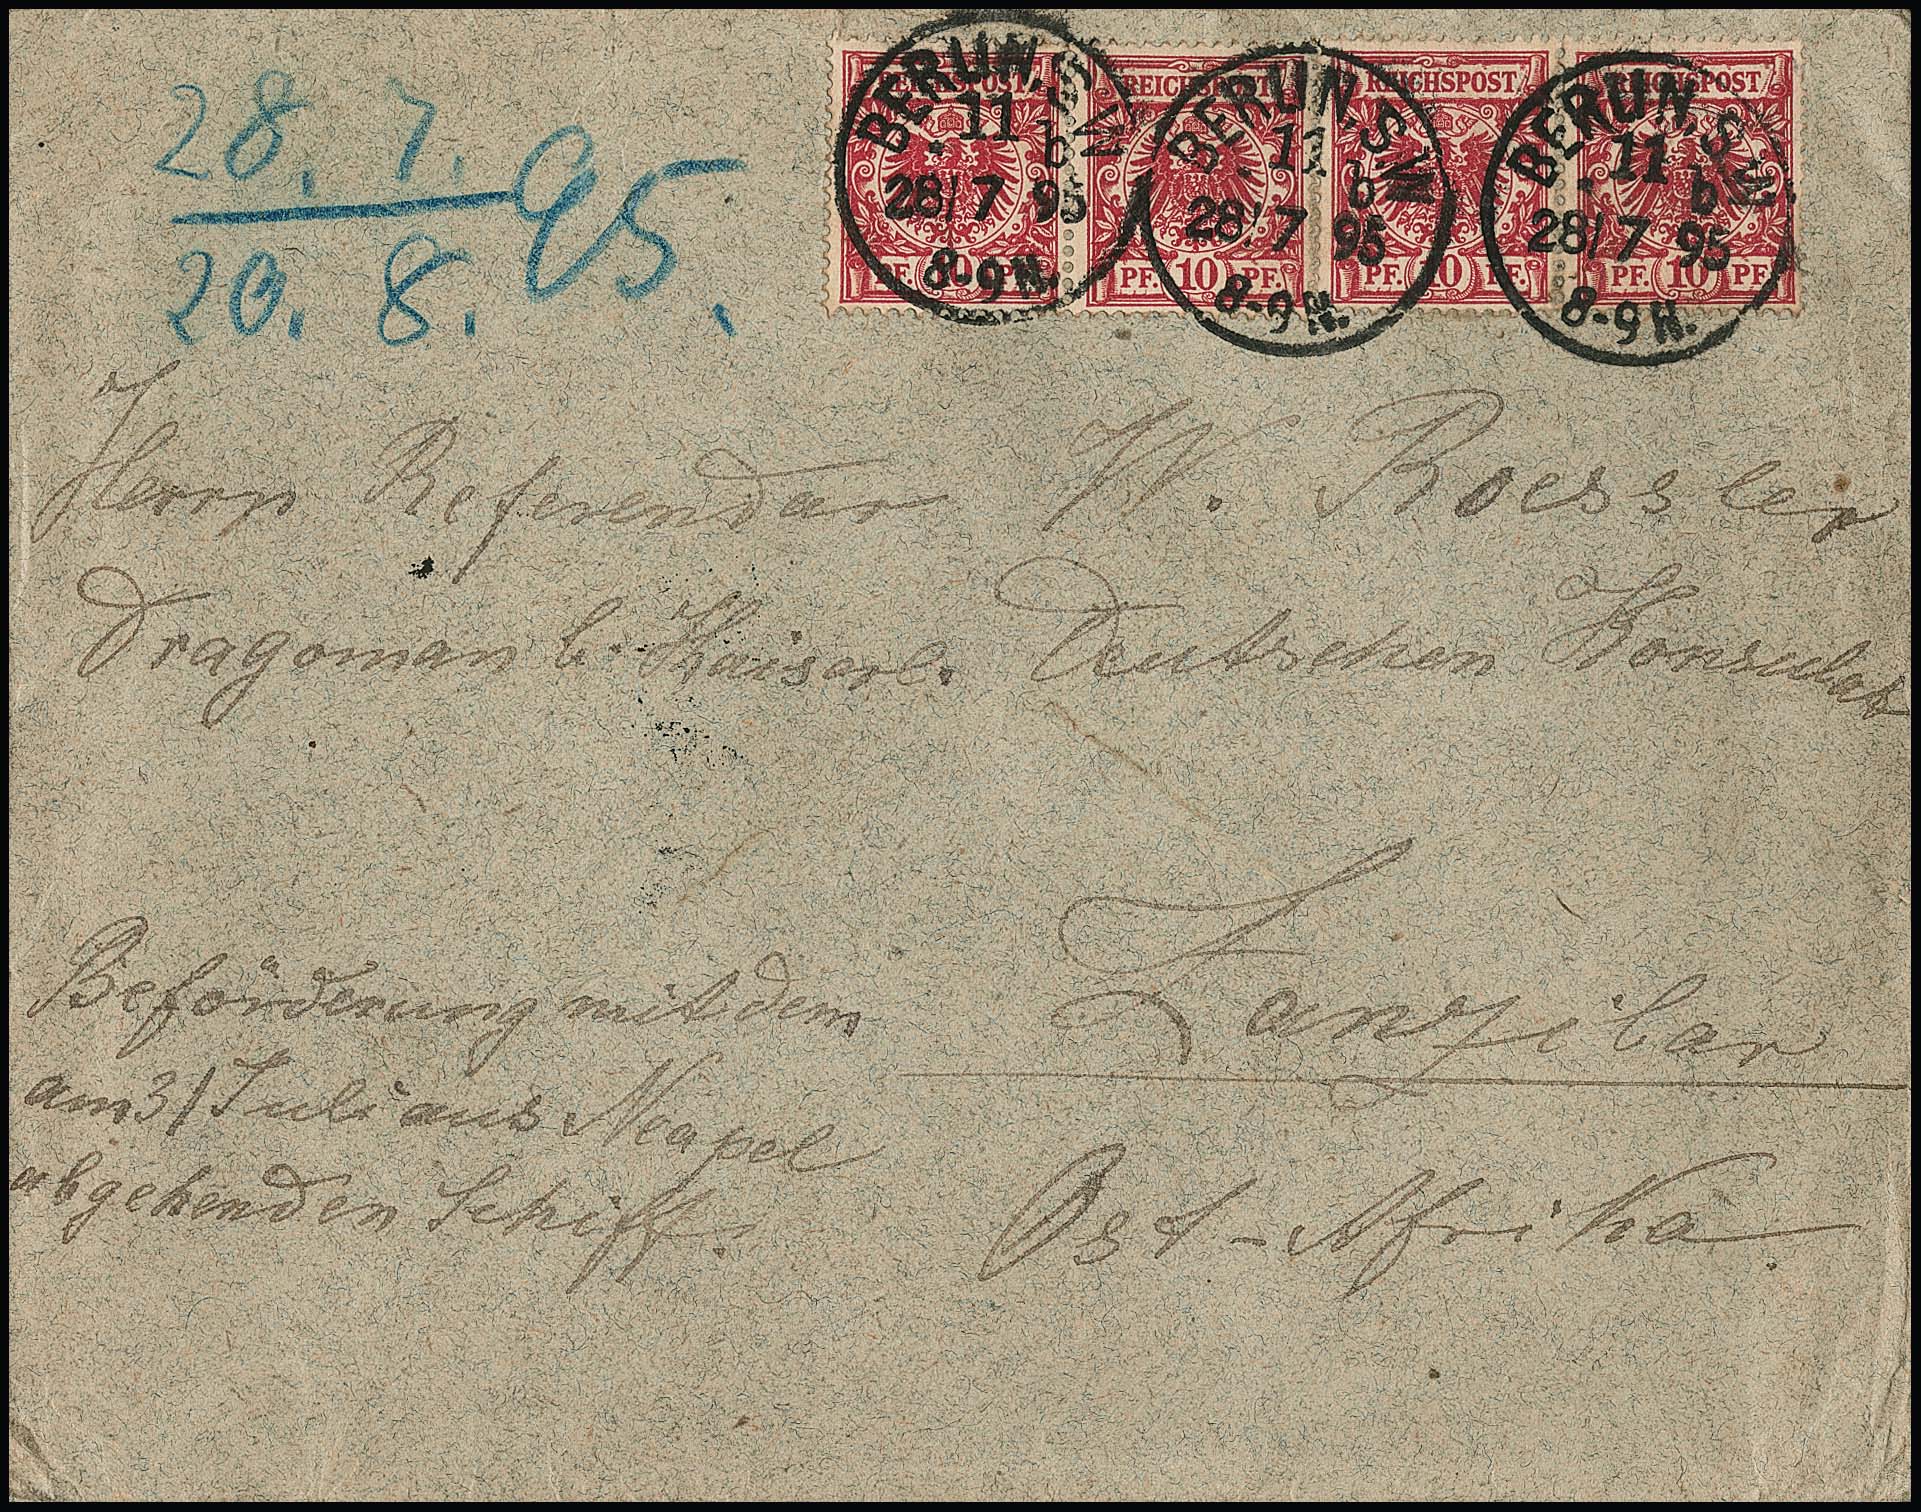 28. 7. 95.
20. 8.
REICHSPOST REICHSPOST REICHSPOST REICHSPOST
PF. 10 PF. PF. 10 PF. PF. 10 PF. PF. 10 PF.
BERLIN, S.W. 11 b
28/7 95
8-9 N.
BERLIN, S.W. 11 b
28/7 95
8-9 N.
BERLIN, S.W. 11 b
28/7 95
8-9 N.
Herrn Referendar W. Roessler
Dragoman b. Kaiserl. Deutschen Konsulat
Zanzibar
Ost-Afrika.
Beförderung mit dem
am 31 Juli aus Neapel
abgehenden Schiff.